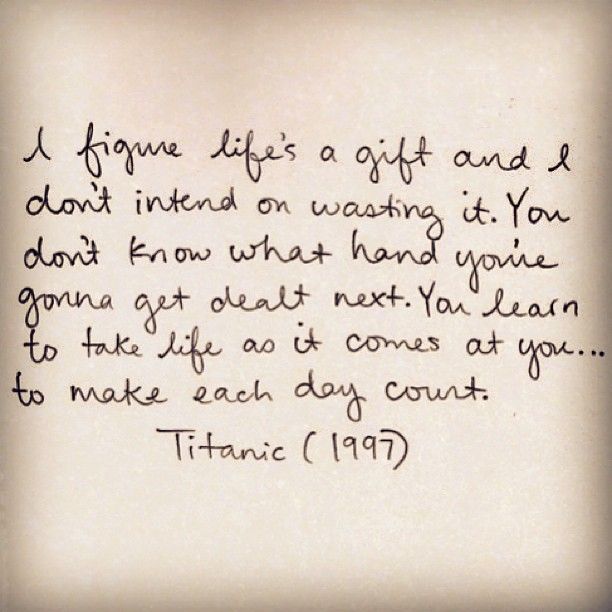 I figure life's a gift and I
don't intend on wasting it. You
don't know what hand you're
gonna get dealt next. You learn
to take life as it comes at you...
to make each day count.
Titanic (1997)